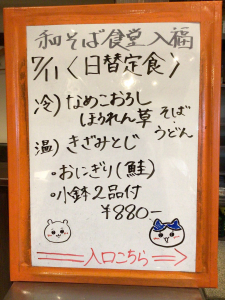 和そば食堂入福
7/11〈日替定食〉
冷)なめこおろし
ほうれん草
そば・
うどん
温)きざみとじ
・おにぎり(鮭)
・小鉢2品付
¥880-
入口こちら